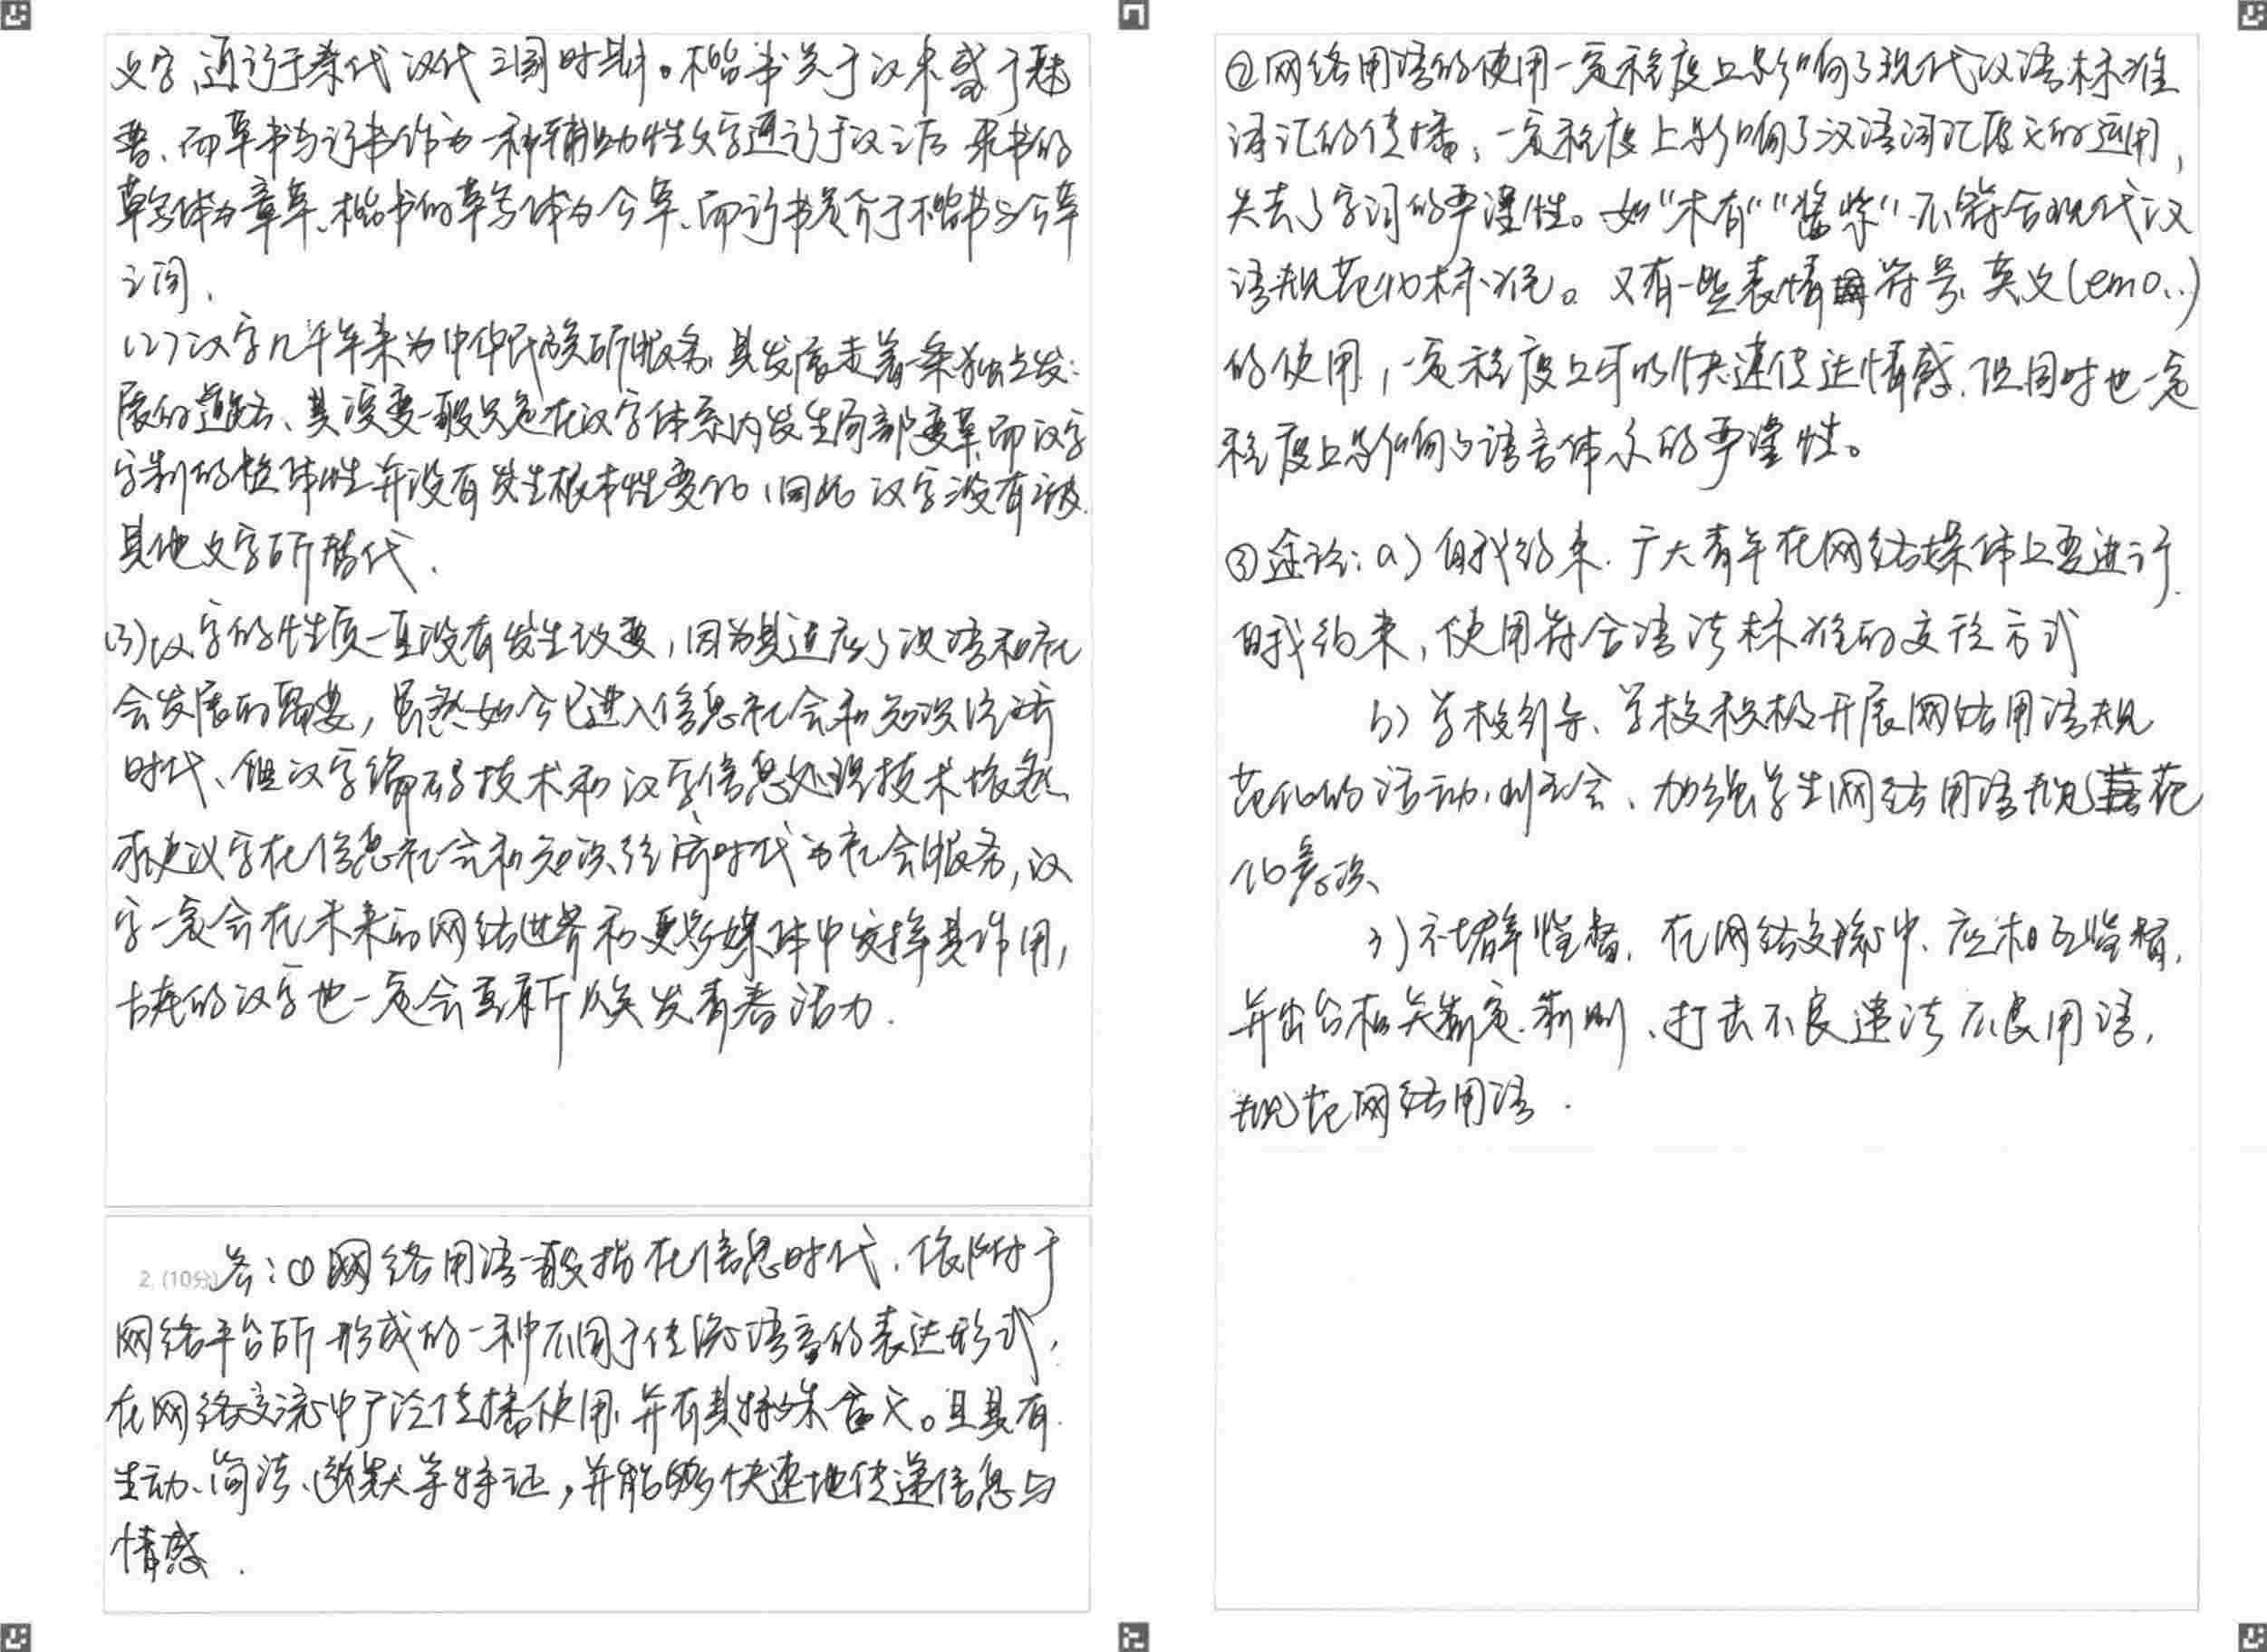 文字,通行于秦代汉代三国时期。楷书兴于汉末盛于魏
晋、而草书与行书作为一种辅助性文字通行于汉之后 隶书的
草写体为章草、楷书的草写体为今草、而行书是介于楷书与今草
之间、
(2)汉字几千年来为中华民族所服务,其发展走着一条独立发
展的道路、其演变一般只是在汉字体系内发生局部变革,而汉字
字制的整体性并没有发生根本性变化,因此汉字没有被
其他文字所替代.
(3)汉字的性质一直没有发生改变,因为其适应了汉语和社
会发展的需要,虽然如今已进入信息社会和知识经济
时代、但汉字编码技术和汉字信息处理技术依然
会使汉字在信息社会和知识经济时代为社会服务,汉
字一定会在未来的网络世界和更多媒体中发挥其作用,
古老的汉字也一定会重新焕发青春活力.
2. (10分) 答:①网络用语一般指在信息时代、依附于
网络平台所形成的一种不同于传统语言的表达形式,
在网络交流中广泛传播使用,并有其特殊含义。且具有
生动、简洁、幽默等特征,并能够快速地传递信息与
情感.
②网络用语的使用一定程度上影响了现代汉语标准
语汇的传播,一定程度上影响了汉语词汇原义的运用,
失去了字词的严谨性。如“木有”“酱紫”不符合现代汉
语规范化标准。又有一些表情符号、英文(emo..)
的使用,一定程度上可以快速传达情感,但同时也一定
程度上影响了语言体系的严谨性。
③途径:a)自我约束.广大青年在网络媒体上要进行
自我约束,使用符合语法标准的交流方式
b)学校引导、学校积极开展网络用语规
范化的活动,班会、加强学生网络用语规范
化意识、
3)社群监督.在网络交流中、应相互监督,
并出台相关制定.新则、打击不良违法不良用语,
规范网络用语.